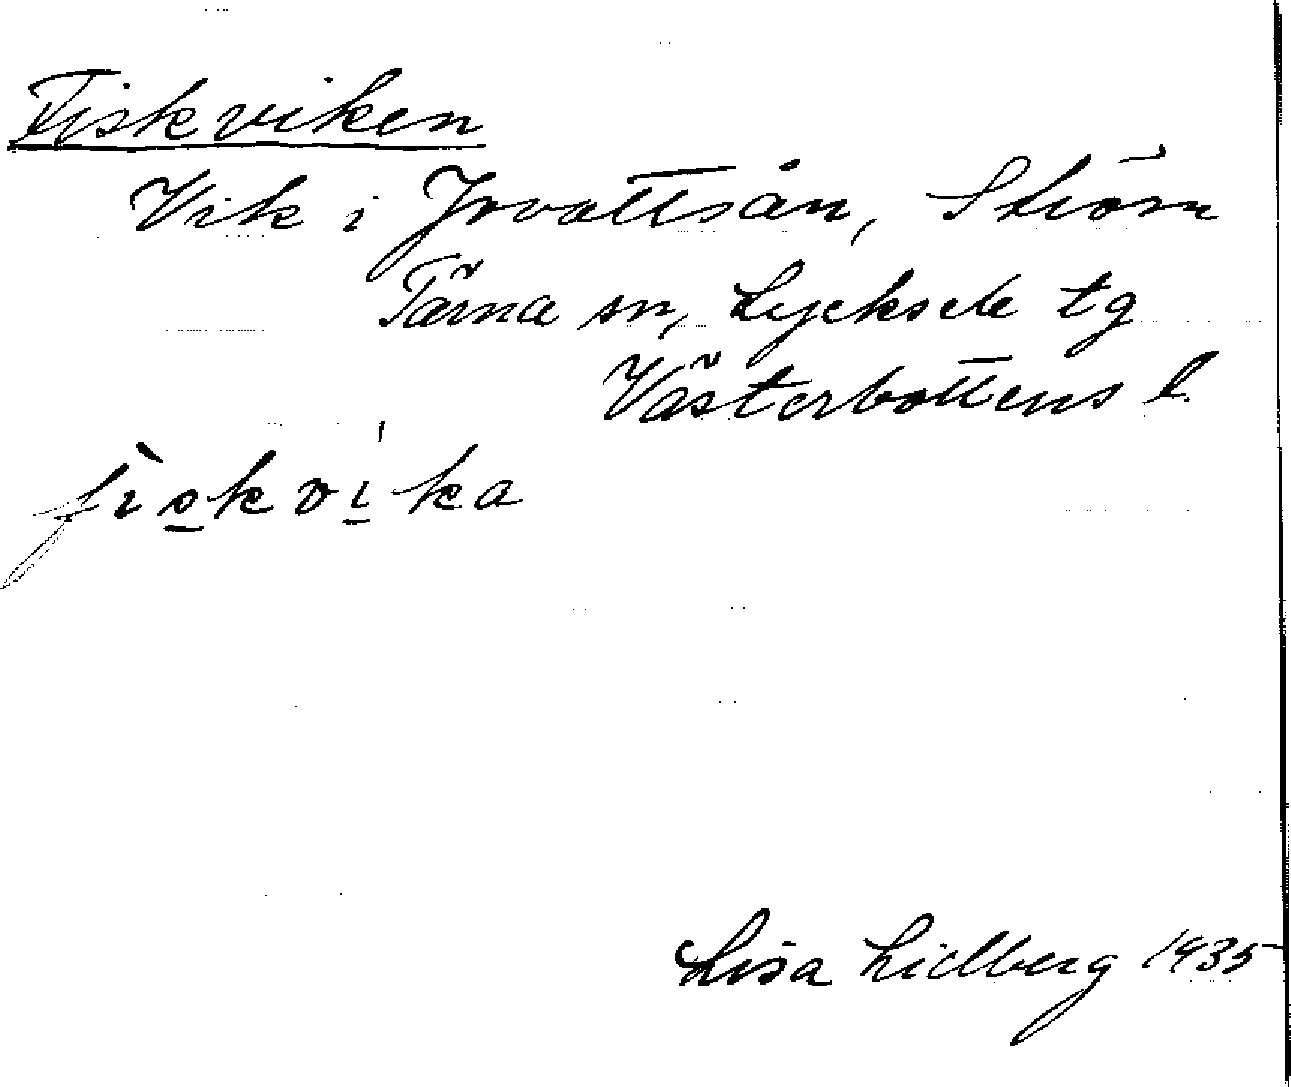 Fiskviken
Vik i Jovattsån, Ström
Tärna sn, Lycksele tg
Västerbottens l.
fìskvíka
Lisa Lidberg 1935